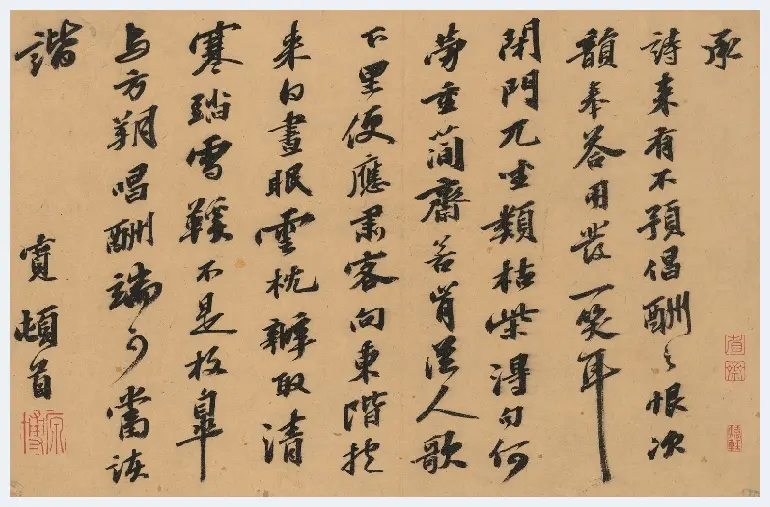 承
詩來有不預倡酬之恨次
韻奉答用發一笑耳
閉門兀坐類枯柴得句何
勞重簡齋若肯從人歌
下里便應肅客向東階抛
來白晝眠雲枕辦取清
寒踏雪鞋不是枚皋
与方朔唱酬端可當詼
諧
寬頓首
原博